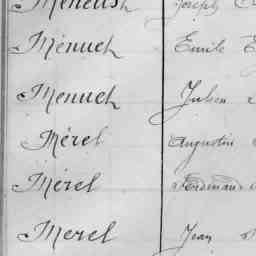 Joseph
Menuet Emile E
Menuet Julien
Mérel Augustin
Mérel Ferdinand
Merel Jean